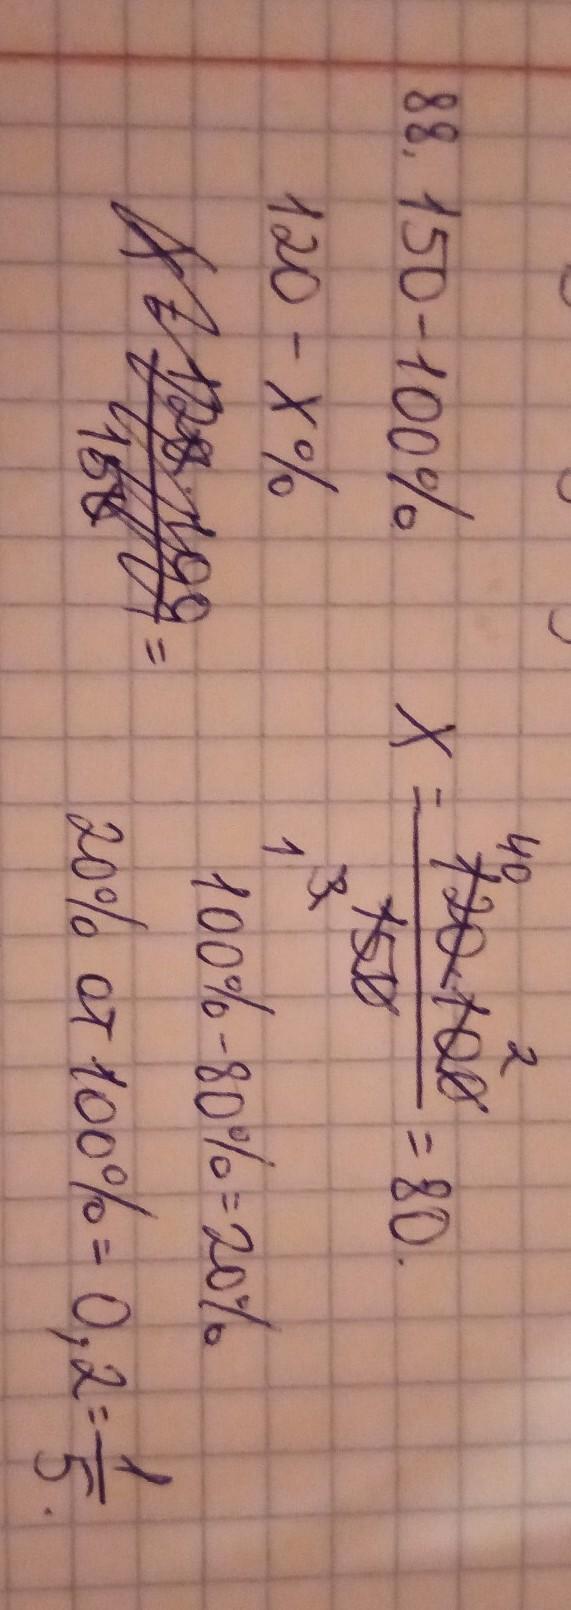 88. 150 - 100%
120 - x%
x = 120·100 / 150 =
x = 120·100 / 150 = 80.
40 2
1 3
100% - 80% = 20%
20% от 100% = 0,2 = 1/5.